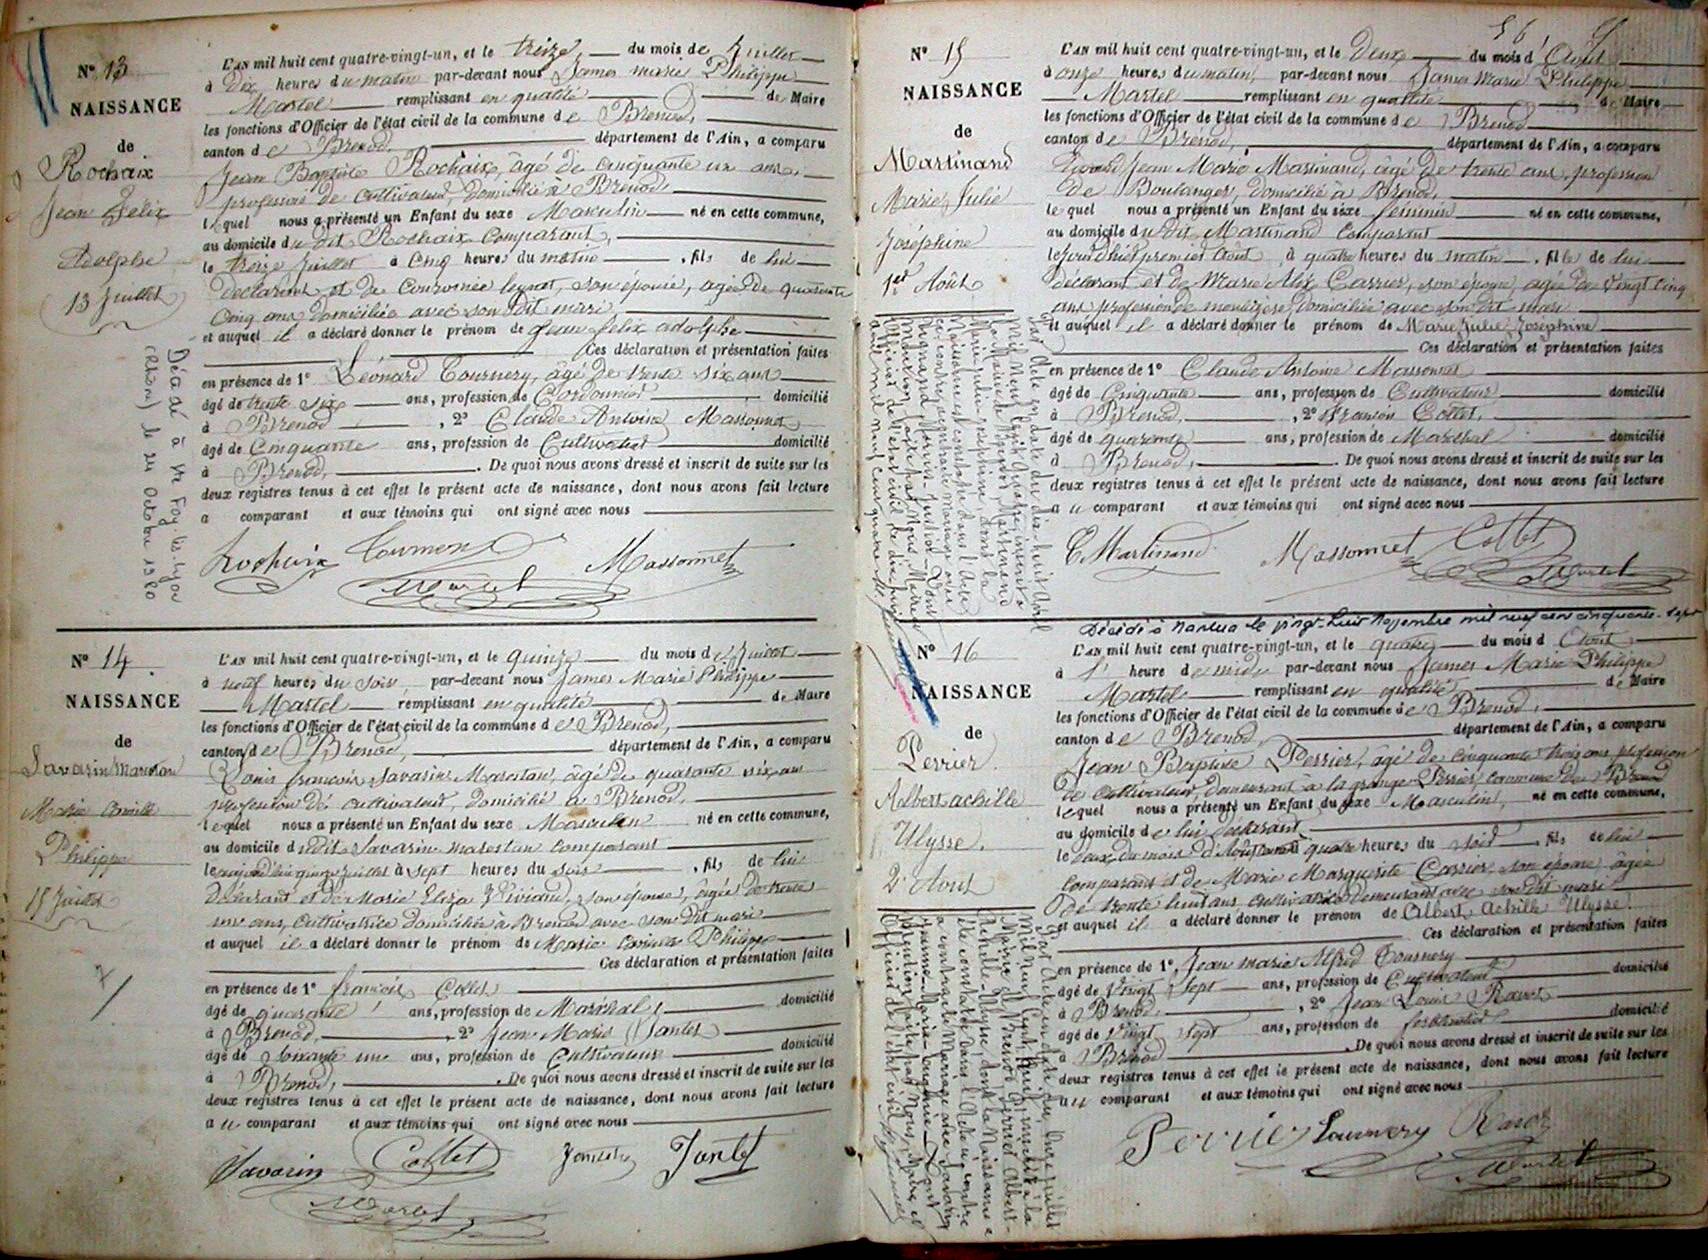 N° 13
NAISSANCE
de
Rochaix
Jean Félix
Adolphe
13 Juillet
Décédé à Ste Foy-lès-Lyon
(Rhône) le Octobre 1980
L'AN mil huit cent quatre-vingt-un, et le treize du mois de Juillet
à dix heures du matin par-devant nous James Marie Philippe
Martel remplissant en qualité de Maire
les fonctions d'Officier de l'état civil de la commune de Brenod,
canton de Brenod, département de l'Ain, a comparu
Jean Baptiste Rochaix, âgé de cinquante un ans,
profession de cultivateur, domicilié à Brenod,
lequel nous a présenté un Enfant du sexe Masculin né en cette commune,
au domicile du dit Rochaix comparant,
le treize Juillet à cinq heures du matin, fils de lui
déclarant et de son épouse, agée de quarante
cinq ans domiciliée avec son dit mari,
et auquel il a déclaré donner le prénom de Jean felix adolphe
Ces déclaration et présentation faites
en présence de 1° Léonard Tournery, âgé de trente six ans
âgé de trente six ans, profession de Cordonnier domicilié
à Brenod, 2° Claude Antoine Massonnet
âgé de Cinquante ans, profession de Cultivateur domicilié
à Brenod, De quoi nous avons dressé et inscrit de suite sur les
deux registres tenus à cet effet le présent acte de naissance, dont nous avons fait lecture
a comparant et aux témoins qui ont signé avec nous
Rochaix Massonnet
Martel
N° 14
NAISSANCE
de
Savarin Marestan
Marie
Philippe
15 Juillet
L'AN mil huit cent quatre-vingt-un, et le quinze du mois de Juillet
à neuf heures du soir, par-devant nous James Marie Philippe
Martel remplissant en qualité de Maire
les fonctions d'Officier de l'état civil de la commune de Brenod,
canton de Brenod, département de l'Ain, a comparu
Louis françois Savarin Marestan, âgé de quarante six ans
profession de cultivateur, domicilié à Brenod,
lequel nous a présenté un Enfant du sexe Masculin né en cette commune,
au domicile du dit Savarin Marestan comparant
le aujourd'hui quinze Juillet à sept heures du soir, fils de lui
Déclarant et de Marie Eliza son épouse, âgée de trente
ans, cultivatrice domiciliée à Brenod avec son dit mari
et auquel il a déclaré donner le prénom de Marie Philippe
Ces déclaration et présentation faites
en présence de 1° françois Collet
âgé de quarante ans, profession de Maréchal, domicilié
à Brenod, 2° Jean Marie Jantet
âgé de Soixante un ans, profession de Cultivateur domicilié
à Brenod, De quoi nous avons dressé et inscrit de suite sur les
deux registres tenus à cet effet le présent acte de naissance, dont nous avons fait lecture
au comparant et aux témoins qui ont signé avec nous
Savarin Collet Jantet
Martel
56
N° 15
NAISSANCE
de
Martinand
Marie Julie
Joséphine
1er Août
Par Acte en date du dix-huit Avril
Mil Neuf Cent quatre
Mairie de Brenod, Martinand
Marie Julie Joséphine, dont la
Naissance est constatée dans l'Acte
ci-contre, a contracté mariage avec
L'AN mil huit cent quatre-vingt-un, et le Deux du mois d'Août
à onze heures du matin, par-devant nous James Marie Philippe
Martel remplissant en qualité de Maire
les fonctions d'Officier de l'état civil de la commune de Brenod
canton de Brénod, département de l'Ain, a comparu
Jean Marie Martinand, âgé de trente ans, profession
de Boulanger, domicilié à Brenod,
lequel nous a présenté un Enfant du sexe féminin né en cette commune,
au domicile du dit Martinand comparant
le premier Août, à quatre heures du matin, fille de lui
déclarant et de Marie Alix Carrier, son épouse, âgée de vingt cinq
ans profession de ménagère domiciliée avec son dit mari
et auquel il a déclaré donner le prénom de Marie Julie Joséphine
Ces déclaration et présentation faites
en présence de 1° Claude Antoine Massonnet
âgé de Cinquante ans, profession de Cultivateur domicilié
à Brenod, 2° françois Collet,
âgé de quarante ans, profession de Maréchal domicilié
à Brenod, De quoi nous avons dressé et inscrit de suite sur les
deux registres tenus à cet effet le présent acte de naissance, dont nous avons fait lecture
au comparant et aux témoins qui ont signé avec nous
Martinand Massonnet Collet
Martel
Décédé à Nantua le vingt-huit Novembre mil neuf cent cinquante-sept
N° 16
NAISSANCE
de
Perrier
Albert achille
Ulysse.
2 Aout
Par Acte en date du onze juillet
Mil neuf Cent
Mairie de Brenod, Perrier Albert-
Achille-Ulysse, dont la Naissance
est constatée dans l'Acte ci-contre
a contracté Mariage avec Savarin
L'AN mil huit cent quatre-vingt-un, et le quatre du mois d'Août
à 1 heure de midi par-devant nous James Marie Philippe
Martel remplissant en qualité de Maire
les fonctions d'Officier de l'état civil de la commune de Brenod,
canton de Brenod, département de l'Ain, a comparu
Jean Baptiste Perrier, âgé de cinquante trois ans profession
de Cultivateur, demeurant à la grange Perrier commune de Brenod
lequel nous a présenté un Enfant du sexe Masculin, né en cette commune,
au domicile de lui déclarant
le deux du mois d'Août à quatre heures du soir, fils de lui
comparant et de Marie Marguerite Carrier, son épouse, agée
de trente huit ans cultivatrice demeurant avec son dit mari
et auquel il a déclaré donner le prénom de Albert Achille Ulysse.
Ces déclaration et présentation faites
en présence de 1°, Jean marie Alfred Tournery
âgé de Vingt Sept ans, profession de Cultivateur domicilié
à Brenod, 2° Jean Louis Ravot
âgé de Vingt Sept ans, profession de ferblantier domicilié
à Brenod De quoi nous avons dressé et inscrit de suite sur les
deux registres tenus à cet effet le présent acte de naissance, dont nous avons fait lecture
au comparant et aux témoins qui ont signé avec nous
Perrier Tournery Ravot
Martel